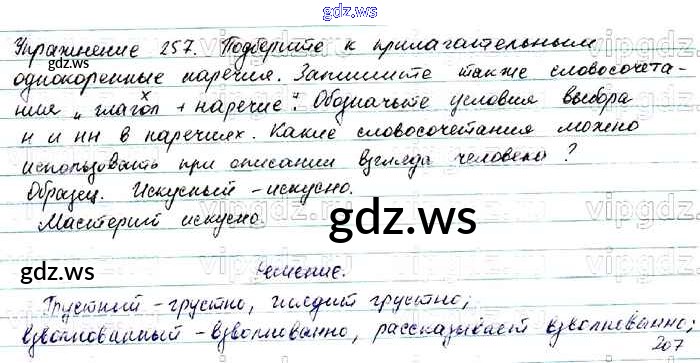 gdz.ws
Упражнение 257. Подберите к прилагательным
однокоренные наречия. Запишите также словосочета-
ния „глагол + наречие". Обозначьте условия выбора
н и нн в наречиях. Какие словосочетания можно
использовать при описании взгляда человека?
Образец. Искусный - искусно.
Мастерит искусно.
gdz.ws
gdz.ws
Решение.
Грустный - грустно, глядит грустно;
взволнованный - взволнованно, рассказывает взволнованно;
207